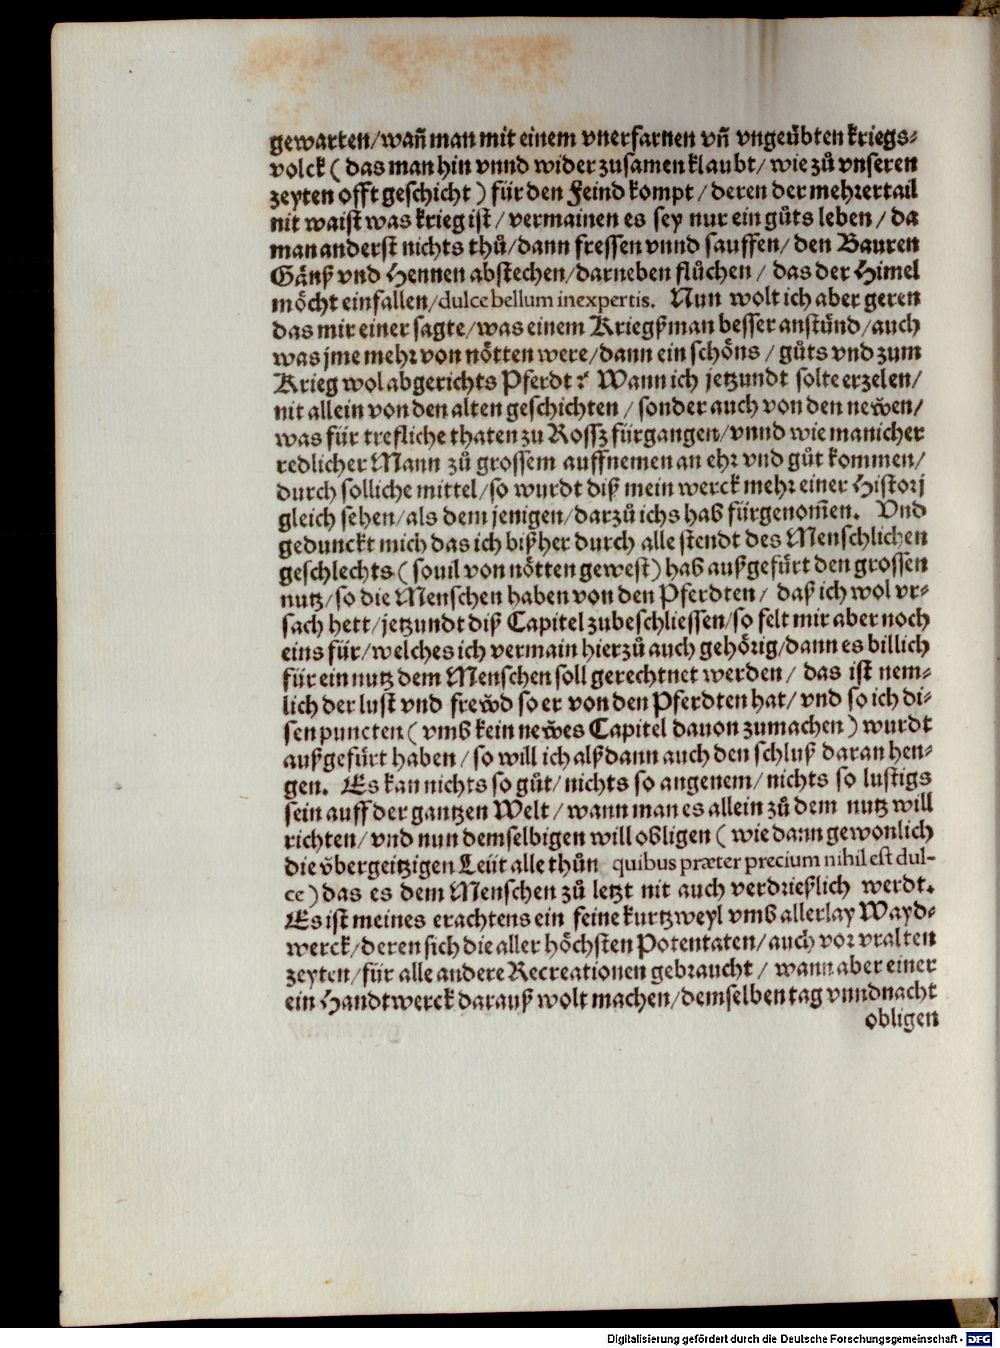 gewarten/wañ man mit einem vnerfarnen vñ vngeübten kriegs⸗
volck ( das man hin vnnd wider zusamen klaubt/ wie zů vnseren
zeyten offt geschicht ) für den Feind kompt / deren der mehrertail
nit waist was krieg ist / vermainen es sey nur ein gůts leben / da
man anderst nichts thů/ dann fressen vnnd sauffen/ den Bauren
Gänß vnd Hennen abstechen/darneben flůchen / das der Himel
möcht einfallen/dulce bellum inexpertis. Nun wolt ich aber geren
das mir einer sagte/was einem Kriegßman besser anstünd/auch
was jme mehr von nötten were/dann ein schöns / gůts vnd zum
Krieg wol abgerichts Pferdt? Wann ich jetzundt solte erzelen/
nit allein von den alten geschichten / sonder auch von den newen/
was für trefliche thaten zu Rossz fürgangen/vnnd wie manicher
redlicher Mann zů grossem auffnemen an ehr vnd gůt kommen/
durch solliche mittel/so wurdt diß mein werck mehr einer Historj
gleich sehen/als dem jenigen/darzů ichs hab fürgenom̃en. Vnd
gedunckt mich das ich bißher durch alle stendt des Menschlichen
geschlechts ( souil von nötten gewest) hab außgefürt den grossen
nutz/so die Menschen haben von den Pferdten / daß ich wol vr⸗
sach hett/jetzundt diß Capitel zubeschliessen/so felt mir aber noch
eins für/welches ich vermain hierzů auch gehörig/dann es billich
für ein nutz dem Menschen soll gerechtnet werden / das ist nem⸗
lich der lust vnd frewd so er von den Pferdten hat/ vnd so ich di⸗
sen puncten ( vmb kein newes Capitel dauon zumachen ) wurdt
außgefürt haben / so will ich alßdann auch den schluß daran hen⸗
gen. Es kan nichts so gůt/ nichts so angenem/ nichts so lustigs
sein auff der gantzen Welt / wann man es allein zů dem nutz will
richten/ vnd nun demselbigen will obligen ( wie dann gewonlich
die vbergeitzigen Leüt alle thůn quibus præter precium nihil est dul-
ce ) das es dem Menschen zů letzt nit auch verdrießlich werdt.
Es ist meines erachtens ein feine kurtzweyl vmb allerlay Wayd⸗
werck/deren sich die aller höchsten Potentaten/auch vor vralten
zeyten/für alle andere Recreationen gebraucht / wann aber einer
ein Handtwerck darauß wolt machen/demselben tag vnnd nacht
obligen
Digitalisierung gefördert durch die Deutsche Forschungsgemeinschaft - DFG